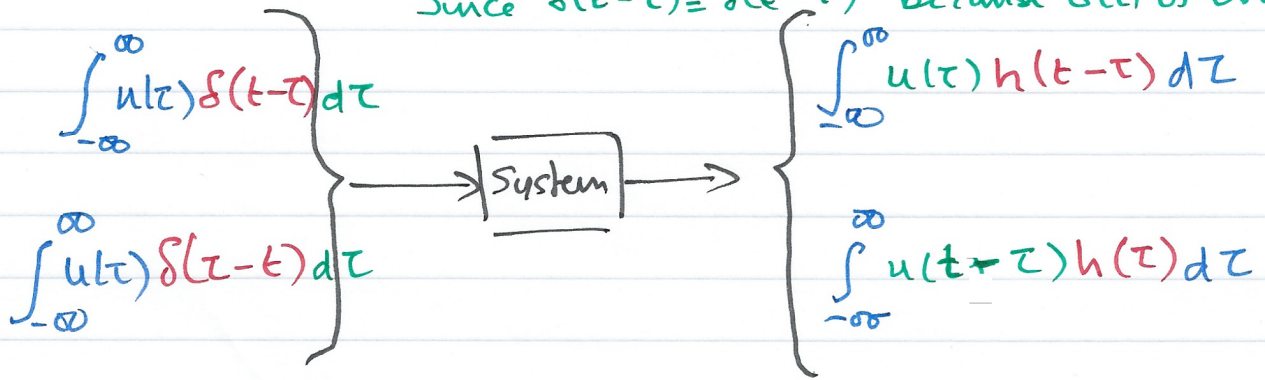 Since δ(t-τ)= because is
∫_{-∞}^{∞} u(τ)δ(t-τ)dτ
∫_{-∞}^{∞} u(τ)δ(τ-t)dτ
System
∫_{-∞}^{∞} u(τ)h(t-τ)dτ
∫_{-∞}^{∞} u(t-τ)h(τ)dτ